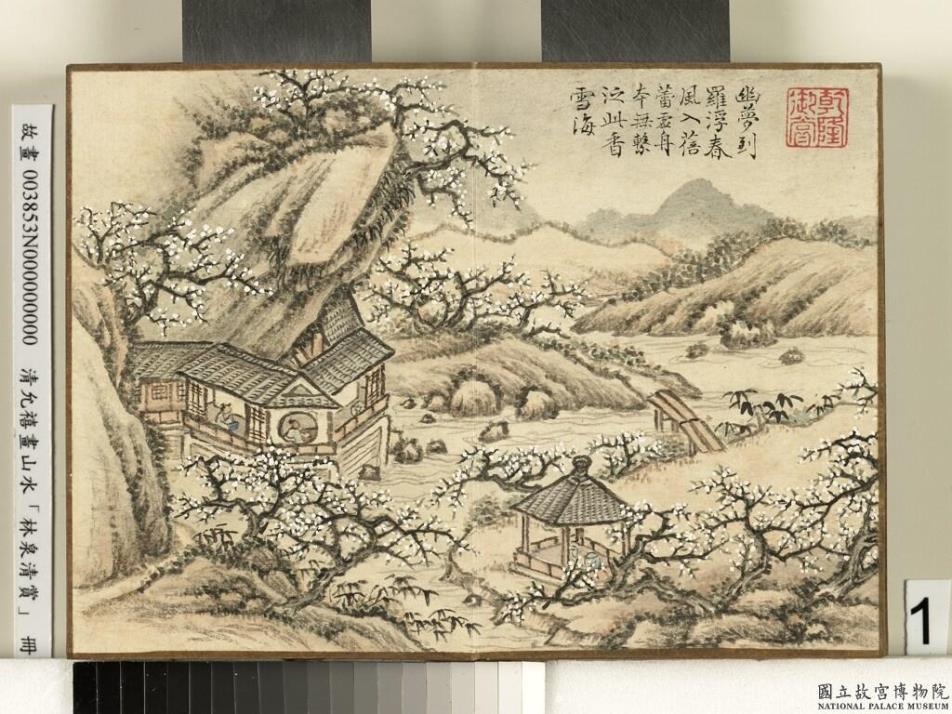 幽夢到
羅浮春
風入蓓
蕾虛舟
本無繫
泛此香
雪海
乾隆
御賞
故畫 003853N000000000 清允禧畫山水「林泉清賞」 冊
1
國立故宮博物院
NATIONAL PALACE MUSEUM